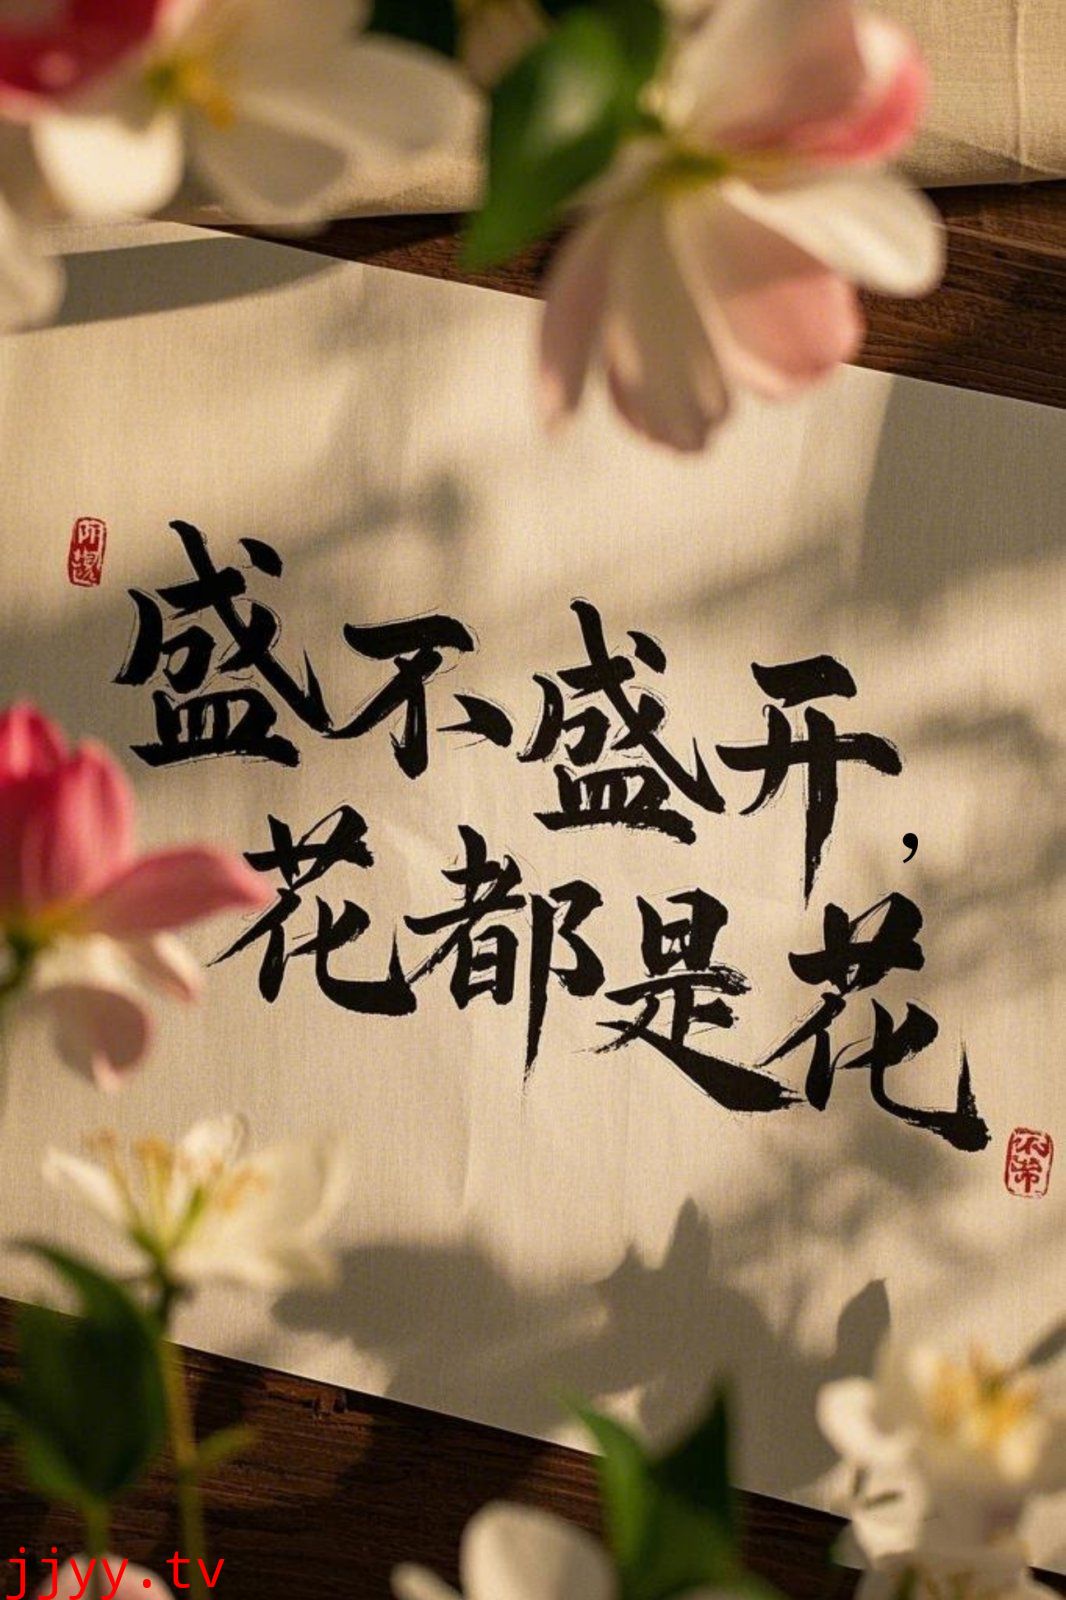 盛不盛开，
花都是花
jjyy.tv